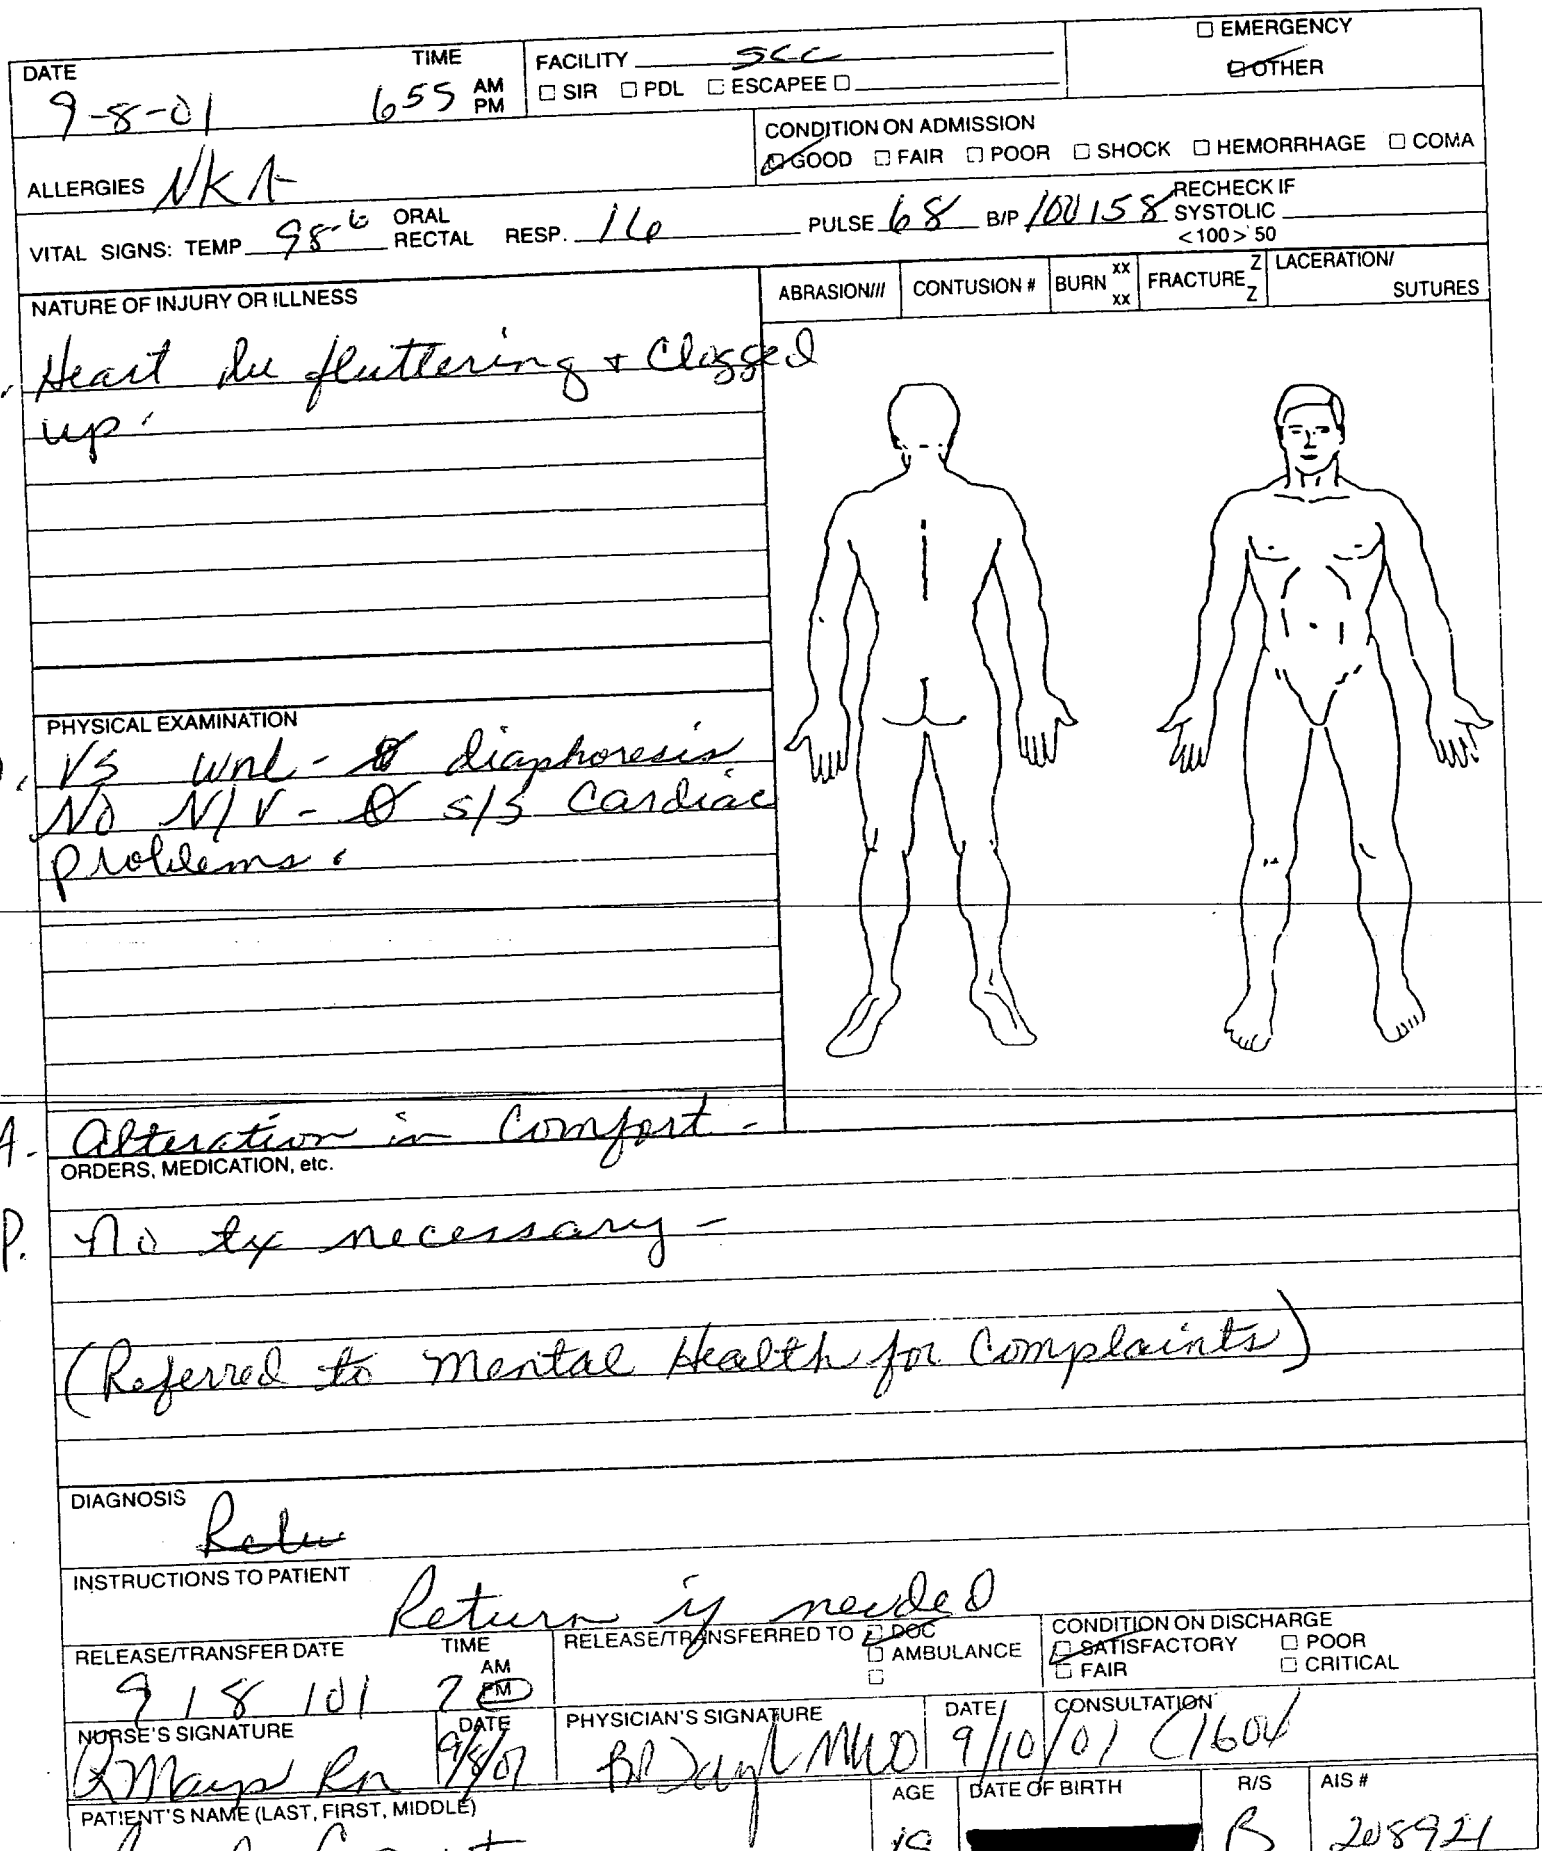 DATE TIME FACILITY SCC □ EMERGENCY
9-8-01 655 AM PM □ SIR □ PDL □ ESCAPEE □ □ OTHER
CONDITION ON ADMISSION
ALLERGIES NKA □ GOOD □ FAIR □ POOR □ SHOCK □ HEMORRHAGE □ COMA
VITAL SIGNS: TEMP 98.6 ORAL RECTAL RESP. 16 PULSE 68 B/P 100/58 RECHECK IF SYSTOLIC <100> 50
NATURE OF INJURY OR ILLNESS ABRASION/// CONTUSION # BURN xx xx FRACTURE Z Z LACERATION/ SUTURES
Heart fluttering + Clogged
up.
PHYSICAL EXAMINATION
VS wnl - Ø diaphoresis
No N/V - Ø s/s Cardiac
problems.
A. Alteration in Comfort -
ORDERS, MEDICATION, etc.
P. No tx necessary -
(Referred to Mental Health for Complaints)
DIAGNOSIS
INSTRUCTIONS TO PATIENT Return if needed
RELEASE/TRANSFER DATE TIME RELEASE/TRANSFERRED TO □ DOC CONDITION ON DISCHARGE
AM □ AMBULANCE □ SATISFACTORY □ POOR
9/8/01 7 PM □ □ FAIR □ CRITICAL
NURSE'S SIGNATURE DATE PHYSICIAN'S SIGNATURE DATE CONSULTATION
Mays Rn 9/8/01 9/10/01
PATIENT'S NAME (LAST, FIRST, MIDDLE) AGE DATE OF BIRTH R/S AIS #
B 208921